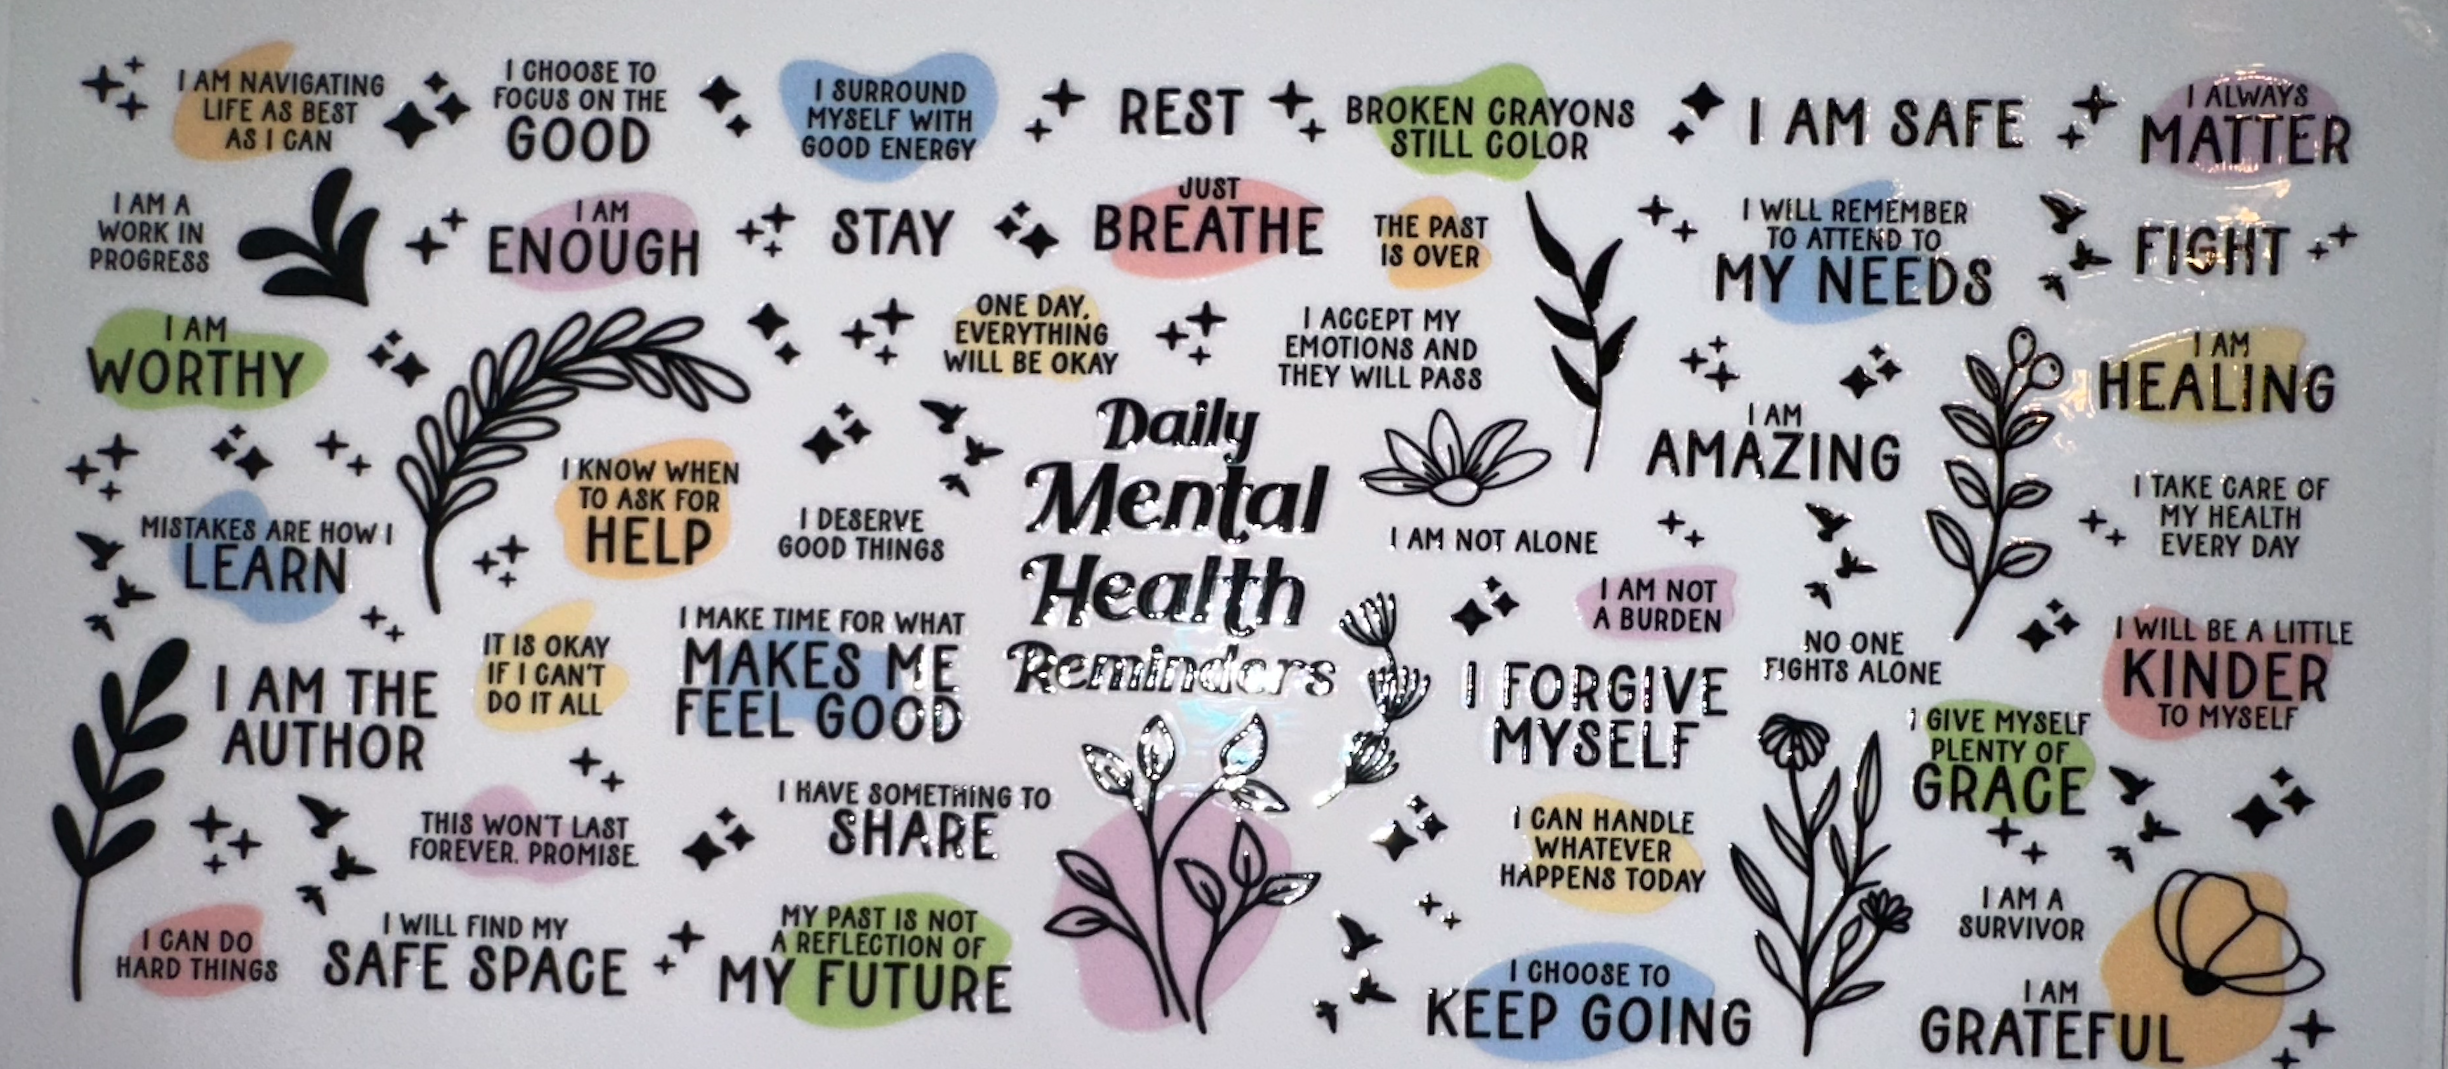 I AM NAVIGATING
LIFE AS BEST
AS I CAN
I CHOOSE TO
FOCUS ON THE
GOOD
I SURROUND
MYSELF WITH
GOOD ENERGY
REST
BROKEN CRAYONS
STILL COLOR
I AM SAFE
I ALWAYS
MATTER
I AM A
WORK IN
PROGRESS
I AM
ENOUGH
STAY
JUST
BREATHE
THE PAST
IS OVER
I WILL REMEMBER
TO ATTEND TO
MY NEEDS
FIGHT
I AM
WORTHY
ONE DAY,
EVERYTHING
WILL BE OKAY
I ACCEPT MY
EMOTIONS AND
THEY WILL PASS
I AM
HEALING
Daily
Mental
Health
Reminders
I AM
AMAZING
MISTAKES ARE HOW I
LEARN
I KNOW WHEN
TO ASK FOR
HELP
I DESERVE
GOOD THINGS
I AM NOT ALONE
I TAKE CARE OF
MY HEALTH
EVERY DAY
I AM NOT
A BURDEN
I AM THE
AUTHOR
IT IS OKAY
IF I CAN'T
DO IT ALL
I MAKE TIME FOR WHAT
MAKES ME
FEEL GOOD
I FORGIVE
MYSELF
NO ONE
FIGHTS ALONE
I WILL BE A LITTLE
KINDER
TO MYSELF
I GIVE MYSELF
PLENTY OF
GRACE
THIS WON'T LAST
FOREVER. PROMISE.
I HAVE SOMETHING TO
SHARE
I CAN HANDLE
WHATEVER
HAPPENS TODAY
I AM A
SURVIVOR
I CAN DO
HARD THINGS
I WILL FIND MY
SAFE SPACE
MY PAST IS NOT
A REFLECTION OF
MY FUTURE
I CHOOSE TO
KEEP GOING
I AM
GRATEFUL